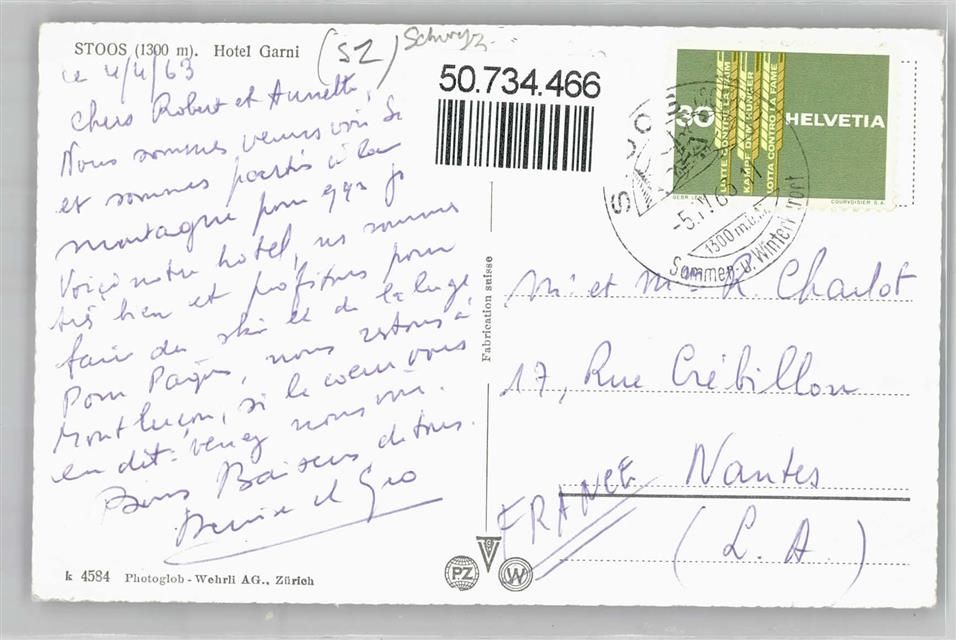 STOOS (1300 m). Hotel Garni
(SZ) Schwyz.
50.734.466
le 4/4/63
Chers Robert et Annette,
Nous sommes venus voir
et sommes partis à la
montagne pour qqs js
Voici notre hotel, ns sommes
très bien et profitons pour
faire du ski et de la luge
Pour Paques, nous restons à
Montluçon, si le coeur vous
en dit - venez nous voir.
Bons Baisers de tous.
Denise et Geo
k 4584 Photoglob - Wehrli AG., Zürich
Fabrication suisse
PZ
W
30 HELVETIA
LUTTE CONTRE LA FAIM
KAMPF DEM HUNGER
LOTTA CONTRO LA FAME
COURVOISIER S.A.
STOOS
-5.IV.63-17
1300 m.ü.M.
Sommer- u. Winter
Mr et Mme R Charlot
17, Rue Crébillon
Nantes
FRANCE
(L. A.)